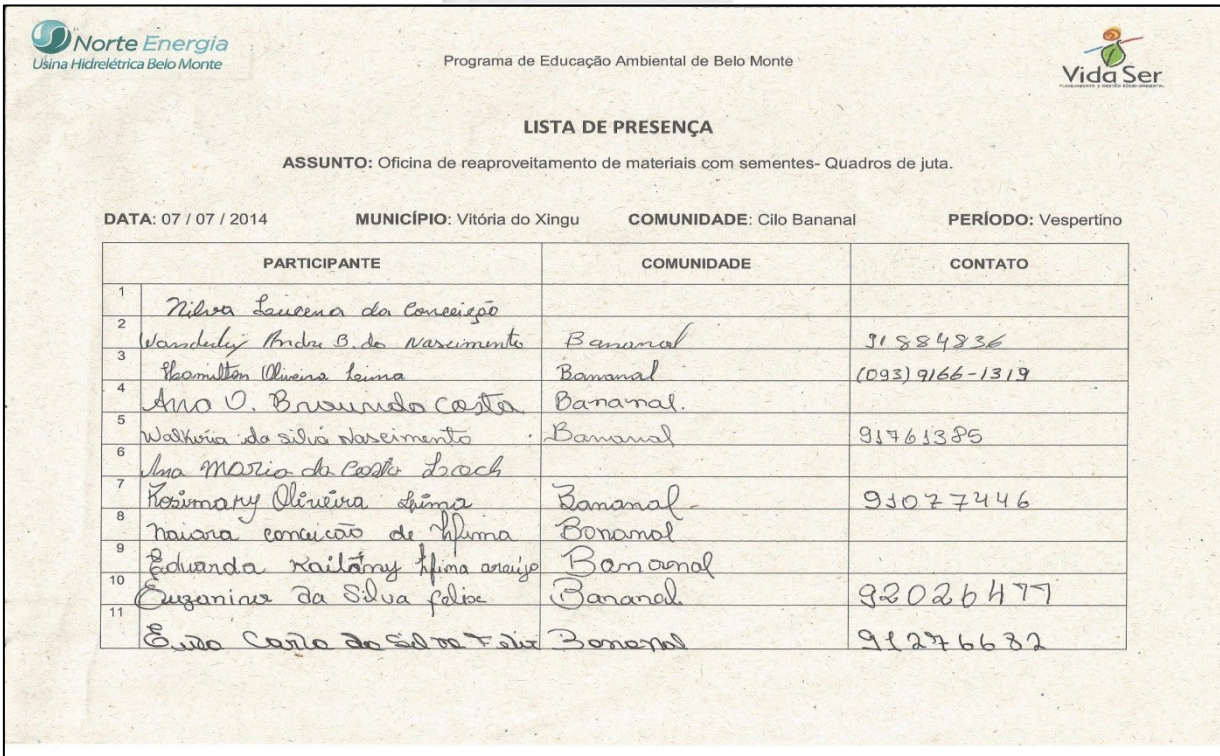 Norte Energia
Usina Hidrelétrica Belo Monte
Programa de Educação Ambiental de Belo Monte
Vida Ser
LISTA DE PRESENÇA
ASSUNTO: Oficina de reaproveitamento de materiais com sementes- Quadros de juta.
DATA: 07 / 07 / 2014 MUNICÍPIO: Vitória do Xingu COMUNIDADE: Cilo Bananal PERÍODO: Vespertino
PARTICIPANTE COMUNIDADE CONTATO
1 Nilva Lucena da Conceição
2 Wanderley Andre B. do Nascimento Bananal 91884836
3 Hamilton Oliveira Leima Bananal (093) 9166-1319
4 Ana O. Costa Bananal.
5 Walkíria da silva Nascimento Bananal 91761385
6 Ana Maria da Costa
7 Rosimary Oliveira Lima Bananal - 91077446
8 naiara conceição de Bonanal
9 Eduarda araújo Bananal
10 da Silva felix Bananal.
11 da Silva Felix Bonanal 91276682